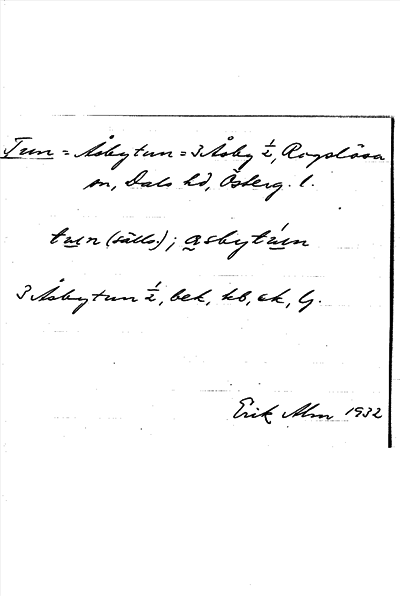 Tun = Åsbytun = 3 Åsby ½, Rogslösa
sn, Dals hd, Österg. l.
tun (sälls.); asbytún
3 Åsbytun ½, bek, kb, ck, G.
Erik Alm 1932